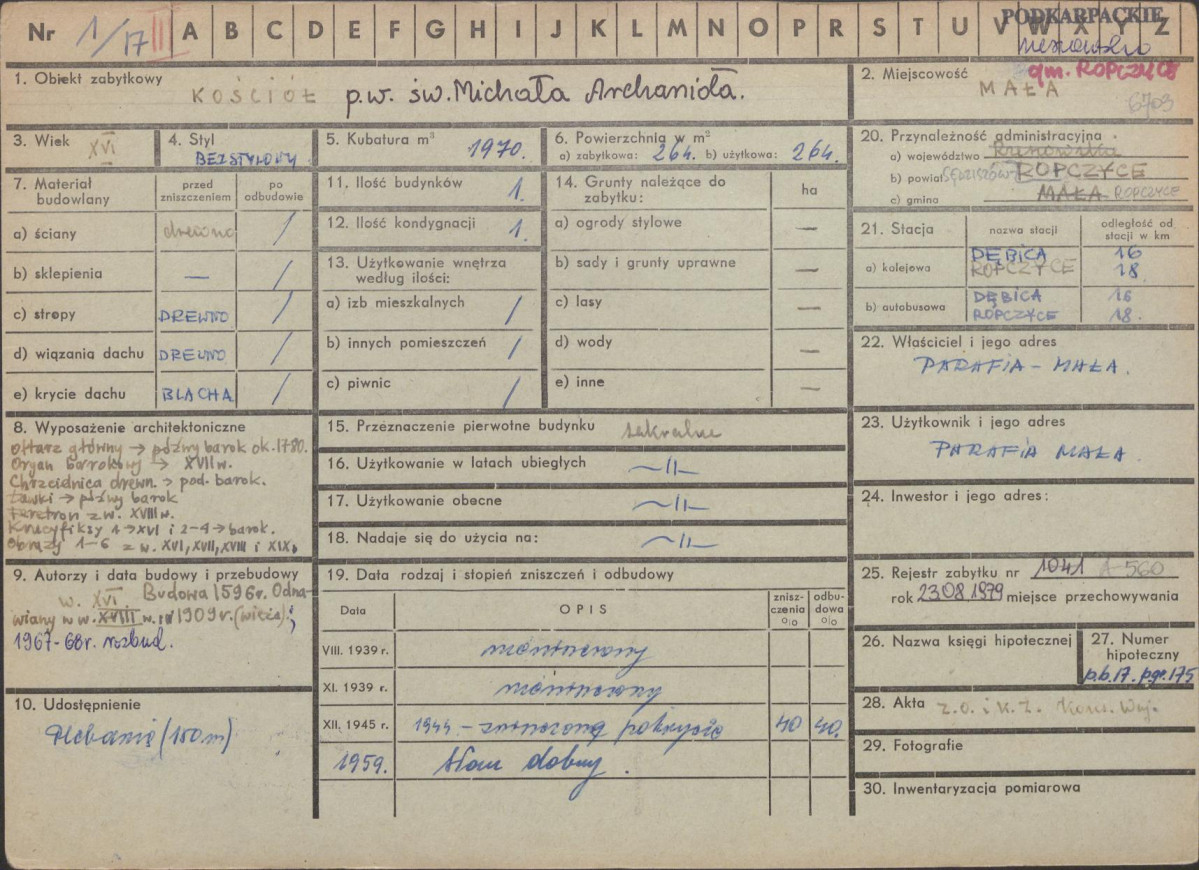 Nr 1/17 III A B C D E F G H I J K L M N O P R S T U V W X Y Z
PODKARPACKIE
gm. ROPCZYCE
1. Obiekt zabytkowy
KOŚCIÓŁ p.w. św. Michała Archanioła.
2. Miejscowość
MAŁA
6703
3. Wiek XVI
4. Styl
BEZSTYLOWY
5. Kubatura m³ 1970.
6. Powierzchnia w m²
a) zabytkowa: 264. b) użytkowa: 264.
20. Przynależność administracyjna
a) województwo Rzeszowskie
b) powiat ROPCZYCE
c) gmina MAŁA ROPCZYCE
7. Materiał budowlany
przed zniszczeniem
po odbudowie
a) ściany drewno /
b) sklepienia — /
c) stropy DREWNO /
d) wiązania dachu DREWNO /
e) krycie dachu BLACHA /
11. Ilość budynków 1.
12. Ilość kondygnacji 1.
13. Użytkowanie wnętrza według ilości:
a) izb mieszkalnych /
b) innych pomieszczeń /
c) piwnic /
14. Grunty należące do zabytku:
ha
a) ogrody stylowe —
b) sady i grunty uprawne —
c) lasy —
d) wody —
e) inne —
21. Stacja
nazwa stacji
odległość od stacji w km
a) kolejowa DĘBICA 16
ROPCZYCE 18
b) autobusowa DĘBICA 16
ROPCZYCE 18.
22. Właściciel i jego adres
PARAFIA - MAŁA.
8. Wyposażenie architektoniczne
Ołtarz główny → późny barok ok. 1780.
Organ barokowy → XVII w.
Chrzcielnica drewn. → pod. barok.
Ławki → późny barok
Feretron z w. XVIII w.
Krucyfiksy 1 → XVI i 2-4 → barok.
Obrazy 1-6 z w. XVI, XVII, XVIII i XIX.
15. Przeznaczenie pierwotne budynku sakralne
16. Użytkowanie w latach ubiegłych ~II~
17. Użytkowanie obecne ~II~
18. Nadaje się do użycia na: ~II~
23. Użytkownik i jego adres
PARAFIA MAŁA.
24. Inwestor i jego adres:
9. Autorzy i data budowy i przebudowy
w. XVI Budowa 1596r. Odna-
wiany w w. XVIII w. i 1909r. (wieża);
1967-68r. rozbud.
19. Data rodzaj i stopień zniszczeń i odbudowy
Data
OPIS
znisz-czenia %
odbu-dowa %
VIII. 1939 r.
XI. 1939 r.
XII. 1945 r. 1944 - zniszczone pokrycie 40 40.
1959. stan dobry.
25. Rejestr zabytku nr 1041 A-560
rok 23.08.1979 miejsce przechowywania
26. Nazwa księgi hipotecznej
27. Numer hipoteczny
p.b.17. pgr.175
10. Udostępnienie
Plebania (150m)
28. Akta
29. Fotografie
30. Inwentaryzacja pomiarowa